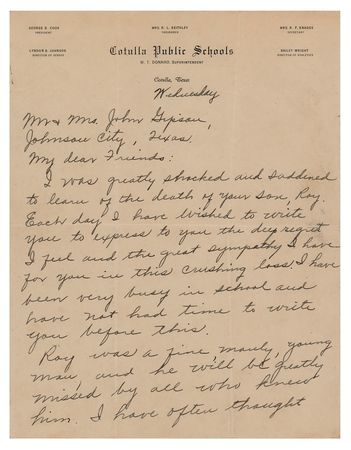 GEORGE D. COOK
PRESIDENT
MRS. R. L. KEITHLEY
MRS. R. F. KNAGGS
SECRETARY
LYNDON B. JOHNSON
Cotulla Public Schools
BAILEY WRIGHT
DIRECTOR OF ATHLETICS
W. T. DONAHO, SUPERINTENDENT
Cotulla, Texas
Wednesday
Mr & Mrs. John Gipson,
Johnson City, Texas.
My dear Friends:
I was greatly shocked and saddened
to learn of the death of your son, Roy.
Each day I have wished to write
you to express to you the deep regret
I feel and the great sympathy I have
for you in this crushing loss. I have
been very busy in school and
have not had time to write
you before this.
Roy was a fine, manly, young
man, and he will be greatly
missed by all who knew
him. I have often thought